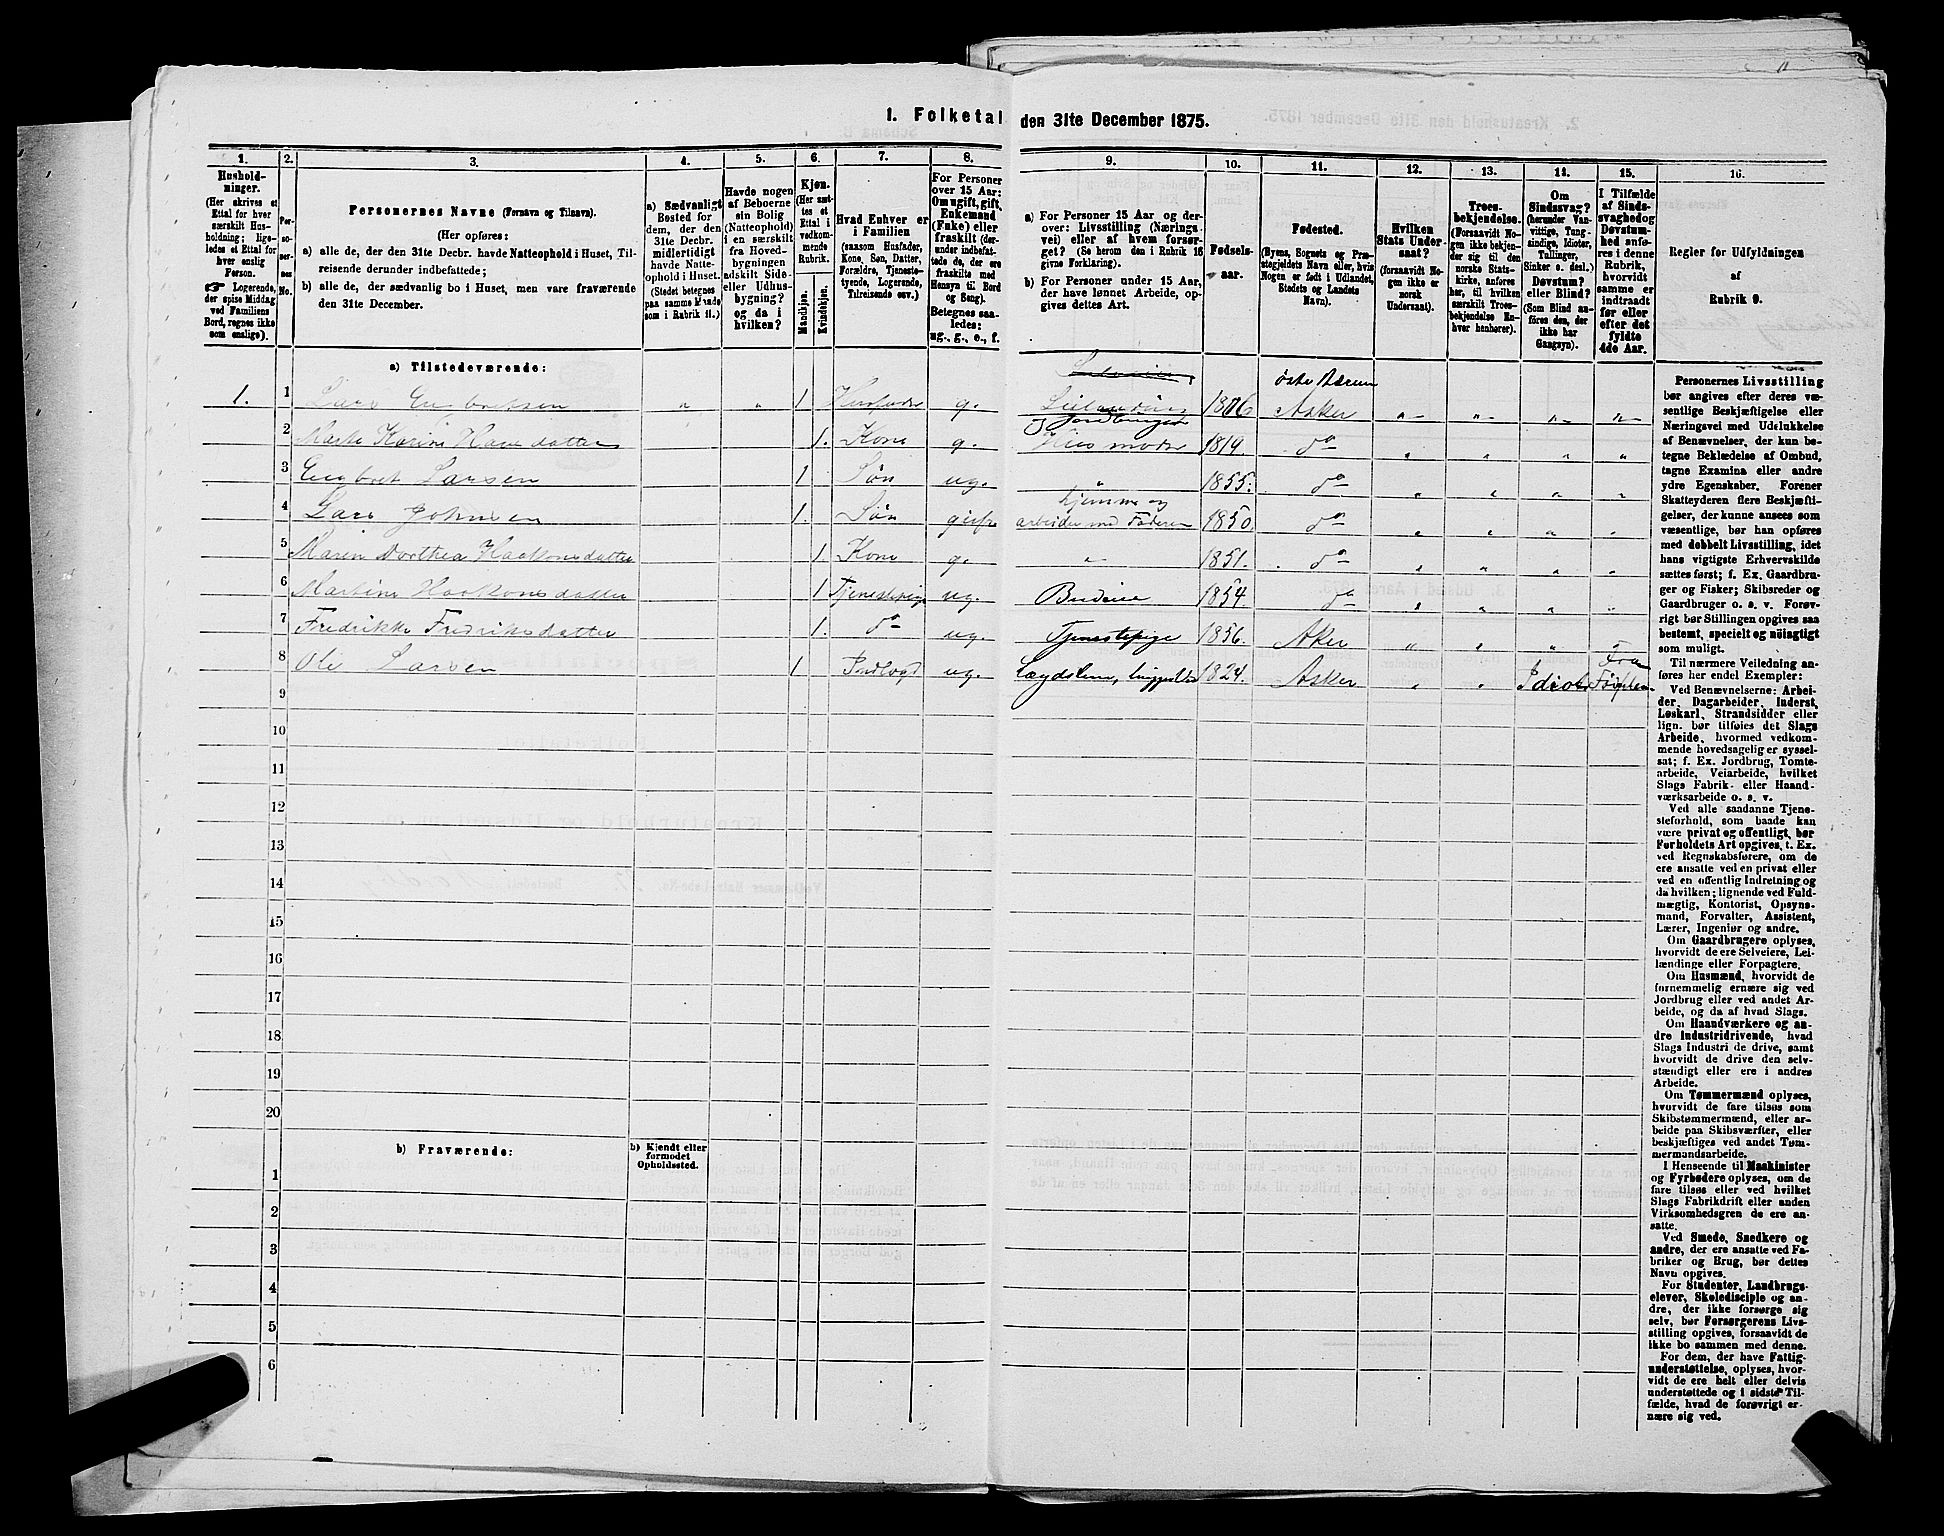 1. Folketal den 31te December 1875.
1. 2. 3. 4. 5. 6. 7. 8. 9. 10. 11. 12. 13. 14. 15. 16.
Hushold-
ninger.
(Her skrives et
Ettal for hver
særskilt Hus-
holdning; lige-
ledes et Ettal for
hver enslig
Person.
☛ Logerende,
der spise Middag
ved Familiens
Bord, regnes ikke
som enslige).
Per-
so-
ner-
nes
No.
Personernes Navne (Fornavn og Tilnavn).
(Her opføres:
a) alle de, der den 31te Decbr. havde Natteophold i Huset, Til-
reisende derunder indbefattede;
b) alle de, der sædvanlig bo i Huset, men vare fraværende
den 31te December.
a) Sædvanligt
Bosted for
dem, der den
31te Decbr.
midlertidigt
havde Natte-
ophold i Huset.
(Stedet betegnes
paa samme Maade
som i Rubrik 11.)
Havde nogen
af Beboerne
sin Bolig
(Natteophold)
i en særskilt
fra Hoved-
bygningen
adskilt Side-
eller Udhus-
bygning?
og da i
hvilken?
Kjøn.
(Her sæt-
tes et
Ettal i
vedkom-
mende
Rubrik.
Mandkjøn.
Kvindekjøn.
Hvad Enhver er
i Familien
(saasom Husfader,
Kone, Søn, Datter,
Forældre, Tjeneste-
tyende, Logerende,
Tilreisende osv.)
For Personer
over 15 Aar:
Om ugift, gift,
Enkemand
(Enke) eller
fraskilt (der-
under indbefat-
tede de, der ere
fraskilte med
Hensyn til Bord
og Seng).
Betegnes saa-
ledes:
ug., g., e., f.
a) For Personer 15 Aar og der-
over: Livsstilling (Nærings-
vei) eller af hvem forsør-
get? (Se herom den i Rubrik 16
givne Forklaring).
b) For Personer under 15 Aar,
der have lønnet Arbeide, op-
gives dettes Art.
Fødsels-
aar.
Fødested.
(Byens, Sognets og Præ-
stegjeldets Navn eller, hvis
Nogen er født i Udlandet,
Stedets og Landets
Navn).
Hvilken
Stats Under-
saat?
(forsaavidt No-
gen ikke er
norsk
Undersaat).
Troes-
bekjendelse.
(Forsaavidt No-
gen ikke bekjen-
der sig til den
norske Stats-
kirke, anføres
her, til hvilken
særskilt Troes-
bekjendelse En-
hver henhører).
Om
Sindssvag?
(herunder Van-
vittige, Tung-
sindige, Idioter,
Tullinger,
Sinker o. desl.)
Døvstum?
eller Blind?
(Som Blind an-
føres den, der
ikke har
Gangsyn).
I Tilfælde
af Sinds-
svaghed og
Døvstum-
hed anfø-
res i denne
Rubrik,
hvorvidt
samme er
indtraadt
før eller
efter det
fyldte
4de Aar.
Regler for Udfyldningen
af
Rubrik 9.
a) Tilstedeværende:
østre Bærum
1. 1 Lars Engbretsen " " 1 Husfader g. Leilending 1806 Asker " " " "
og Jordbruger
2 Marte Karine Hansdatter 1. Kone g. Husmoder 1819. do " " " "
3 Engbret Larsen 1 Søn ug. " 1855. do " " " "
hjemme og
4 Lars Johnsen 1. Søn arbeider med Faderen 1850. do " " " "
5 Maren Dorthea Haakonsdatter 1. Kone g. " 1851. do " " " "
6 Martine Haakonsdatter 1 Tjenestepige ug. Budeie 1854. do " " " "
7 Fredrikke Fredriksdatter 1. do ug. Tjenestepige 1856. Aker " " "
Fra
8 Ole Larsen 1 Indlagt ug. Lægdslem, 1824. Asker " " Idiot Fødselen
9
10
11
12
13
14
15
16
17
18
19
20
b) Fraværende:
b) Kjendt eller
formodet
Opholdssted.
1
2
3
4
5
6
Personernes Livsstilling
bør angives efter deres væ-
sentlige Beskjæftigelse eller
Næringsvei med Udelukkelse
af Benævnelser, der kun be-
tegne Beklædelse af Ombud,
tagne Examina eller andre
ydre Egenskaber. Forener
Skatteyderen flere Beskjæfti-
gelser, der kunne ansees som
væsentlige, bør han opføres
med dobbelt Livsstilling, idet
hans vigtigste Erhvervskilde
sættes først; f. Ex. Gaardbru-
ger og Fisker; Skibsreder og
Gaardbruger o. s. v. Forøv-
rigt bør Stillingen opgives saa
bestemt, specielt og nøiagtigt
som muligt.
Til nærmere Veiledning an-
føres her endel Exempler:
Ved Benævnelserne: Arbei-
der, Dagarbeider, Inderst,
Løskarl, Strandsidder eller
lign. bør tilføies det Slags
Arbeide, hvormed vedkom-
mende hovedsagelig er syssel-
sat; f. Ex. Jordbrug, Tomte-
arbeide, Veiarbeide, hvilket
Slags Fabrik- eller Haand-
værksarbeide o. s. v.
Ved alle saadanne Tjene-
steforhold, som baade kan
være privat og offentligt, bør
Forholdets Art opgives, t. Ex.
ved Regnskabsførere, om de
ere ansatte ved en privat eller
ved en offentlig Indretning og
da hvilken; lignende ved Fuld-
mægtig, Kontorist, Opsyns-
mand, Forvalter, Assistent,
Lærer, Ingeniør og andre.
Om Gaardbrugere oplyses,
hvorvidt de ere Selveiere, Lei-
lændinge eller Forpagtere.
Om Husmænd, hvorvidt de
fornemmelig ernære sig ved
Jordbrug eller ved andet Ar-
beide, og da af hvad Slags.
Om Haandværkere og an-
dre Industridrivende, hvad
Slags Industri de drive, samt
hvorvidt de drive den selv-
stændigt eller ere i andres
Arbeide.
Om Tømmermænd oplyses,
hvorvidt de fare tilsøs som
Skibstømmermænd, eller ar-
beide paa Skibsværfter, eller
beskjæftiges ved andet Tøm-
mermandsarbeide.
I Henseende til Maskinister
og Fyrbødere oplyses, om de
fare tilsøs eller ved hvilket
Slags Fabrikdrift eller anden
Virksomhedsgren de ere an-
satte.
Ved Smede, Snedkere og
andre, der ere ansatte ved Fa-
briker og Brug, bør dettes
Navn opgives.
For Studenter, Landbrugs-
elever, Skoledisciple og an-
dre, der ikke forsørge sig
selv, bør Forsørgerens Livs-
stilling opgives, forsaavidt de
ikke bo sammen med denne.
For dem, der have Fattig-
understøttelse, oplyses, hvor-
vidt de ere helt eller delvis
understøttede og i sidste Til-
fælde, hvad de forøvrigt er-
nære sig ved.